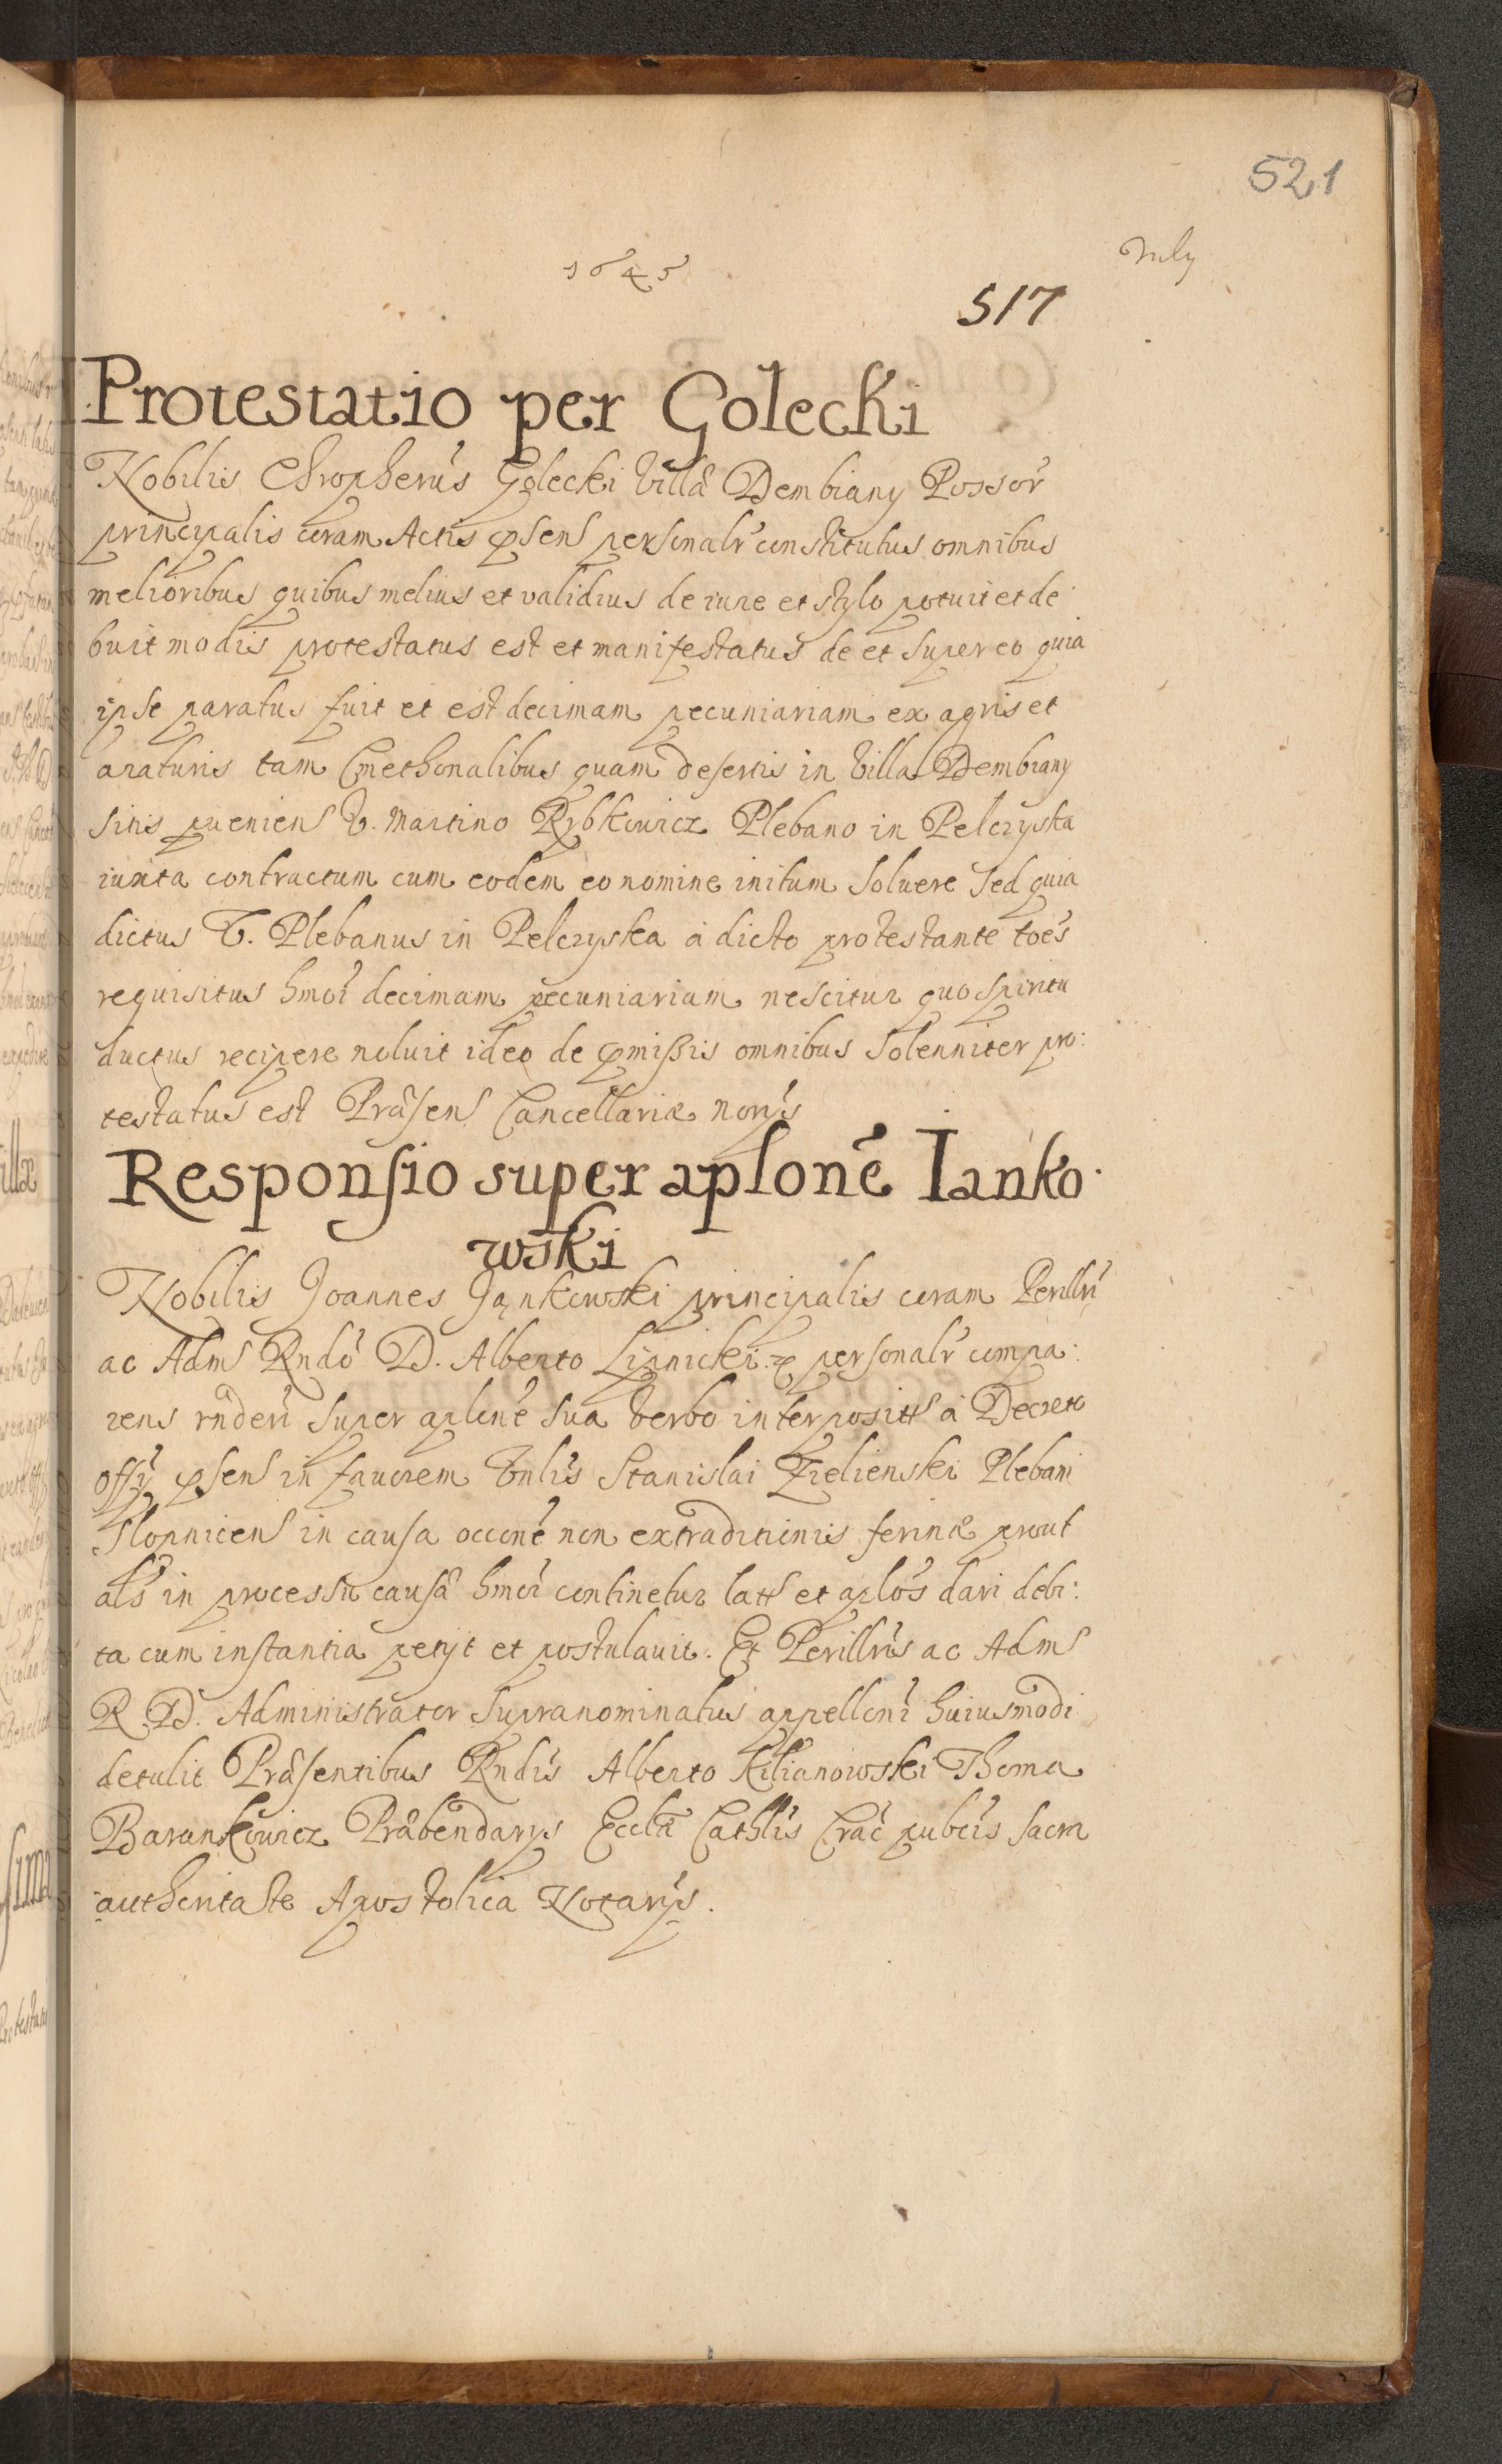 521
1645
July
517
Protestatio per Golecki
Nobilis Chropherus Golecki villæ Dembiany Possor
principalis coram Actis p̃sens personalr constitutus omnibus
melioribus quibus melius et validius de iure et stylo potuit et de
buit modis protestatus est et manifestatus de et super eo quia
ipse paratus fuit et est decimam pecuniariam ex agris et
araturis tam Cmethonalibus quam desertis in villa Dembiany
sitis pueniens V. Martino Rybkowicz Plebano in Pelczyska
iuxta contractum cum eodem eo nomine initum soluere sed quia
dictus V. Plebanus in Pelczyska à dicto protestante toẽs
requisitus hmoi decimam pecuniariam nescitur quo spiritu
ductus recipere noluit ideo de p̃mißis omnibus solenniter pro:
testatus est Præsens Cancellariæ norijs
Responsio super aplonẽ Ianko
wski
Nobilis Joannes Jankowski principalis coram Perillri
ac Adms Rndo D. Alberto Lipnicki personalr compa:
rens rnderi super aplonẽ sua verbo interposits à Decreto
offij p̃sens in fauorem Vnlis Stanislai Zielienski Plebani
Slopnicens in causa occonẽ non extraditionis ferinæ prout
als in processu causæ hmoi continetur lats et aplos dari debi:
ta cum instantia petijt et postulauit. Et Perillris ac Adms
R. D. Administrator supranominatus appelloni huiusmodi
detulit Præsentibus Rndis Alberto Kilianowski Thoma
Barankowicz Præbendarijs Ecclæ Cathlis Crac pubcis sacra
authoritaste Apostolica Notarijs.